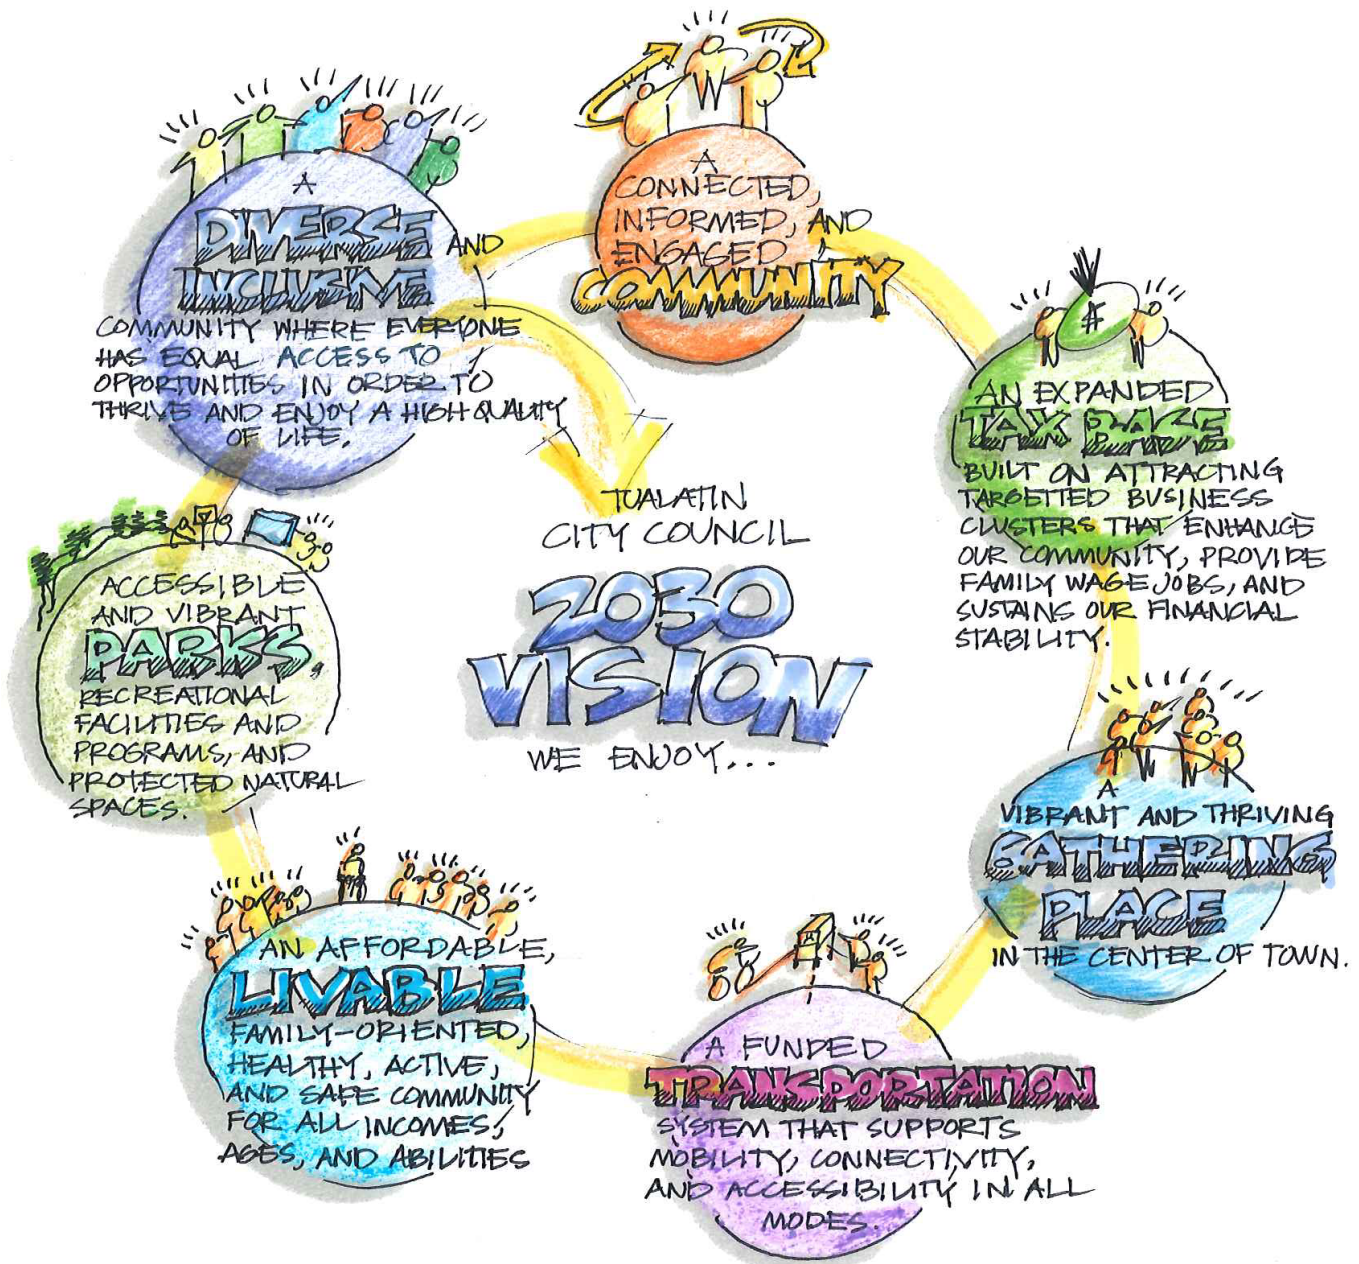 TUALATIN
CITY COUNCIL
2030
VISION
WE ENJOY...
A
DIVERSE AND
INCLUSIVE
COMMUNITY WHERE EVERYONE
HAS EQUAL ACCESS TO
OPPORTUNITIES IN ORDER TO
THRIVE AND ENJOY A HIGH QUALITY
OF LIFE.
A
CONNECTED,
INFORMED, AND
ENGAGED
COMMUNITY
AN EXPANDED
TAX BASE
BUILT ON ATTRACTING
TARGETTED BUSINESS
CLUSTERS THAT ENHANCE
OUR COMMUNITY, PROVIDE
FAMILY WAGE JOBS, AND
SUSTAINS OUR FINANCIAL
STABILITY.
A
VIBRANT AND THRIVING
GATHERING
PLACE
IN THE CENTER OF TOWN.
A FUNDED
TRANSPORTATION
SYSTEM THAT SUPPORTS
MOBILITY, CONNECTIVITY,
AND ACCESSIBILITY IN ALL
MODES.
AN AFFORDABLE,
LIVABLE
FAMILY-ORIENTED,
HEALTHY, ACTIVE,
AND SAFE COMMUNITY
FOR ALL INCOMES,
AGES, AND ABILITIES
ACCESSIBLE
AND VIBRANT
PARKS,
RECREATIONAL
FACILITIES AND
PROGRAMS, AND
PROTECTED NATURAL
SPACES.